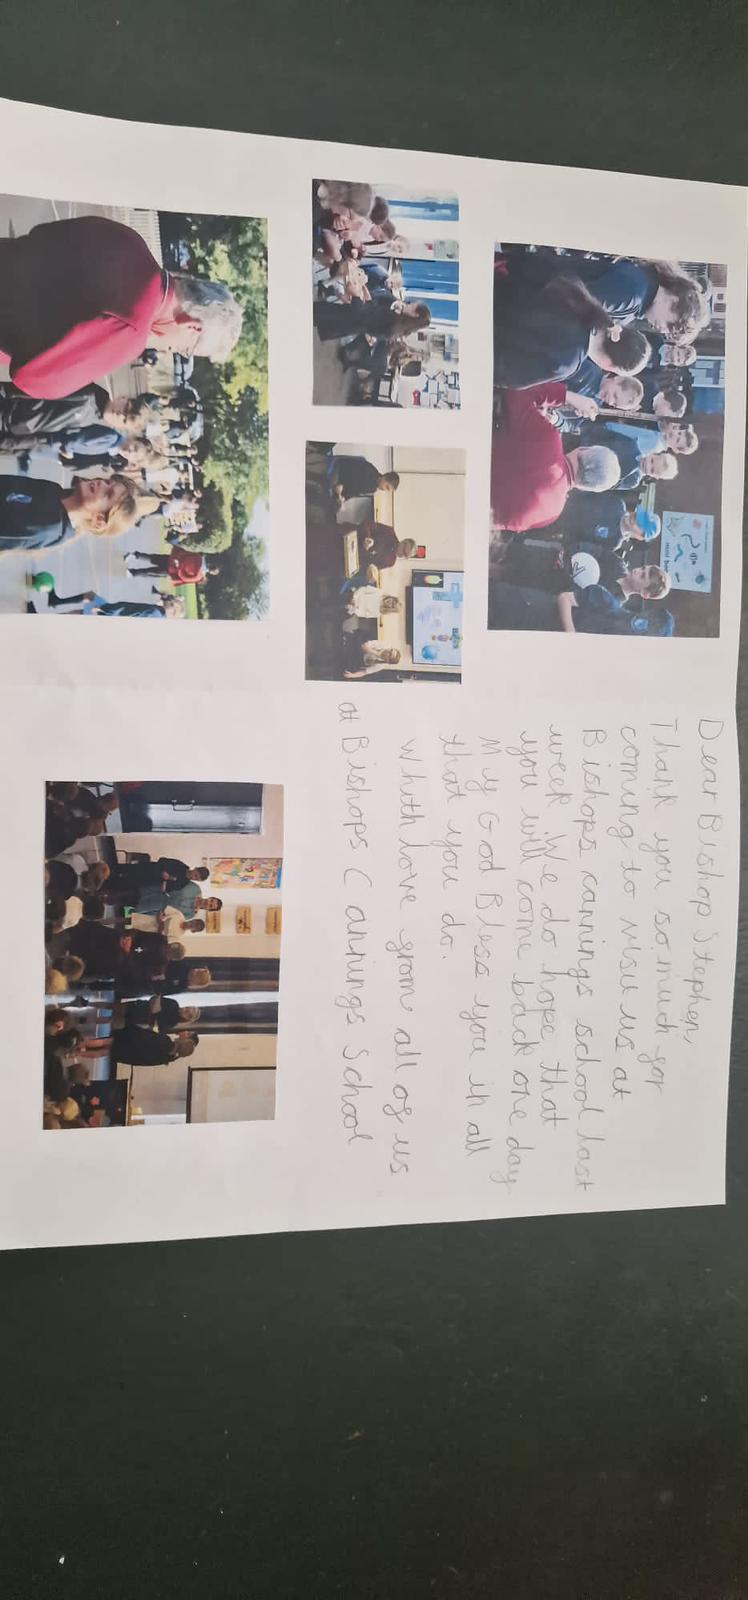 Dear Bishop Stephen,
Thank you so much for
coming to visit us at
Bishops cannings school last
week We do hope that
you will come back one day
My God Bless you in all
that you do.
Whith love from all of us
at Bishops Cannings School